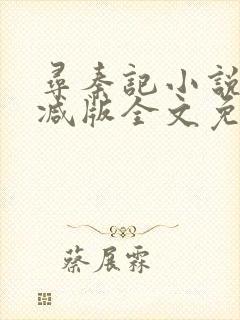 尋秦記小說
减版全文免
蔡展霖